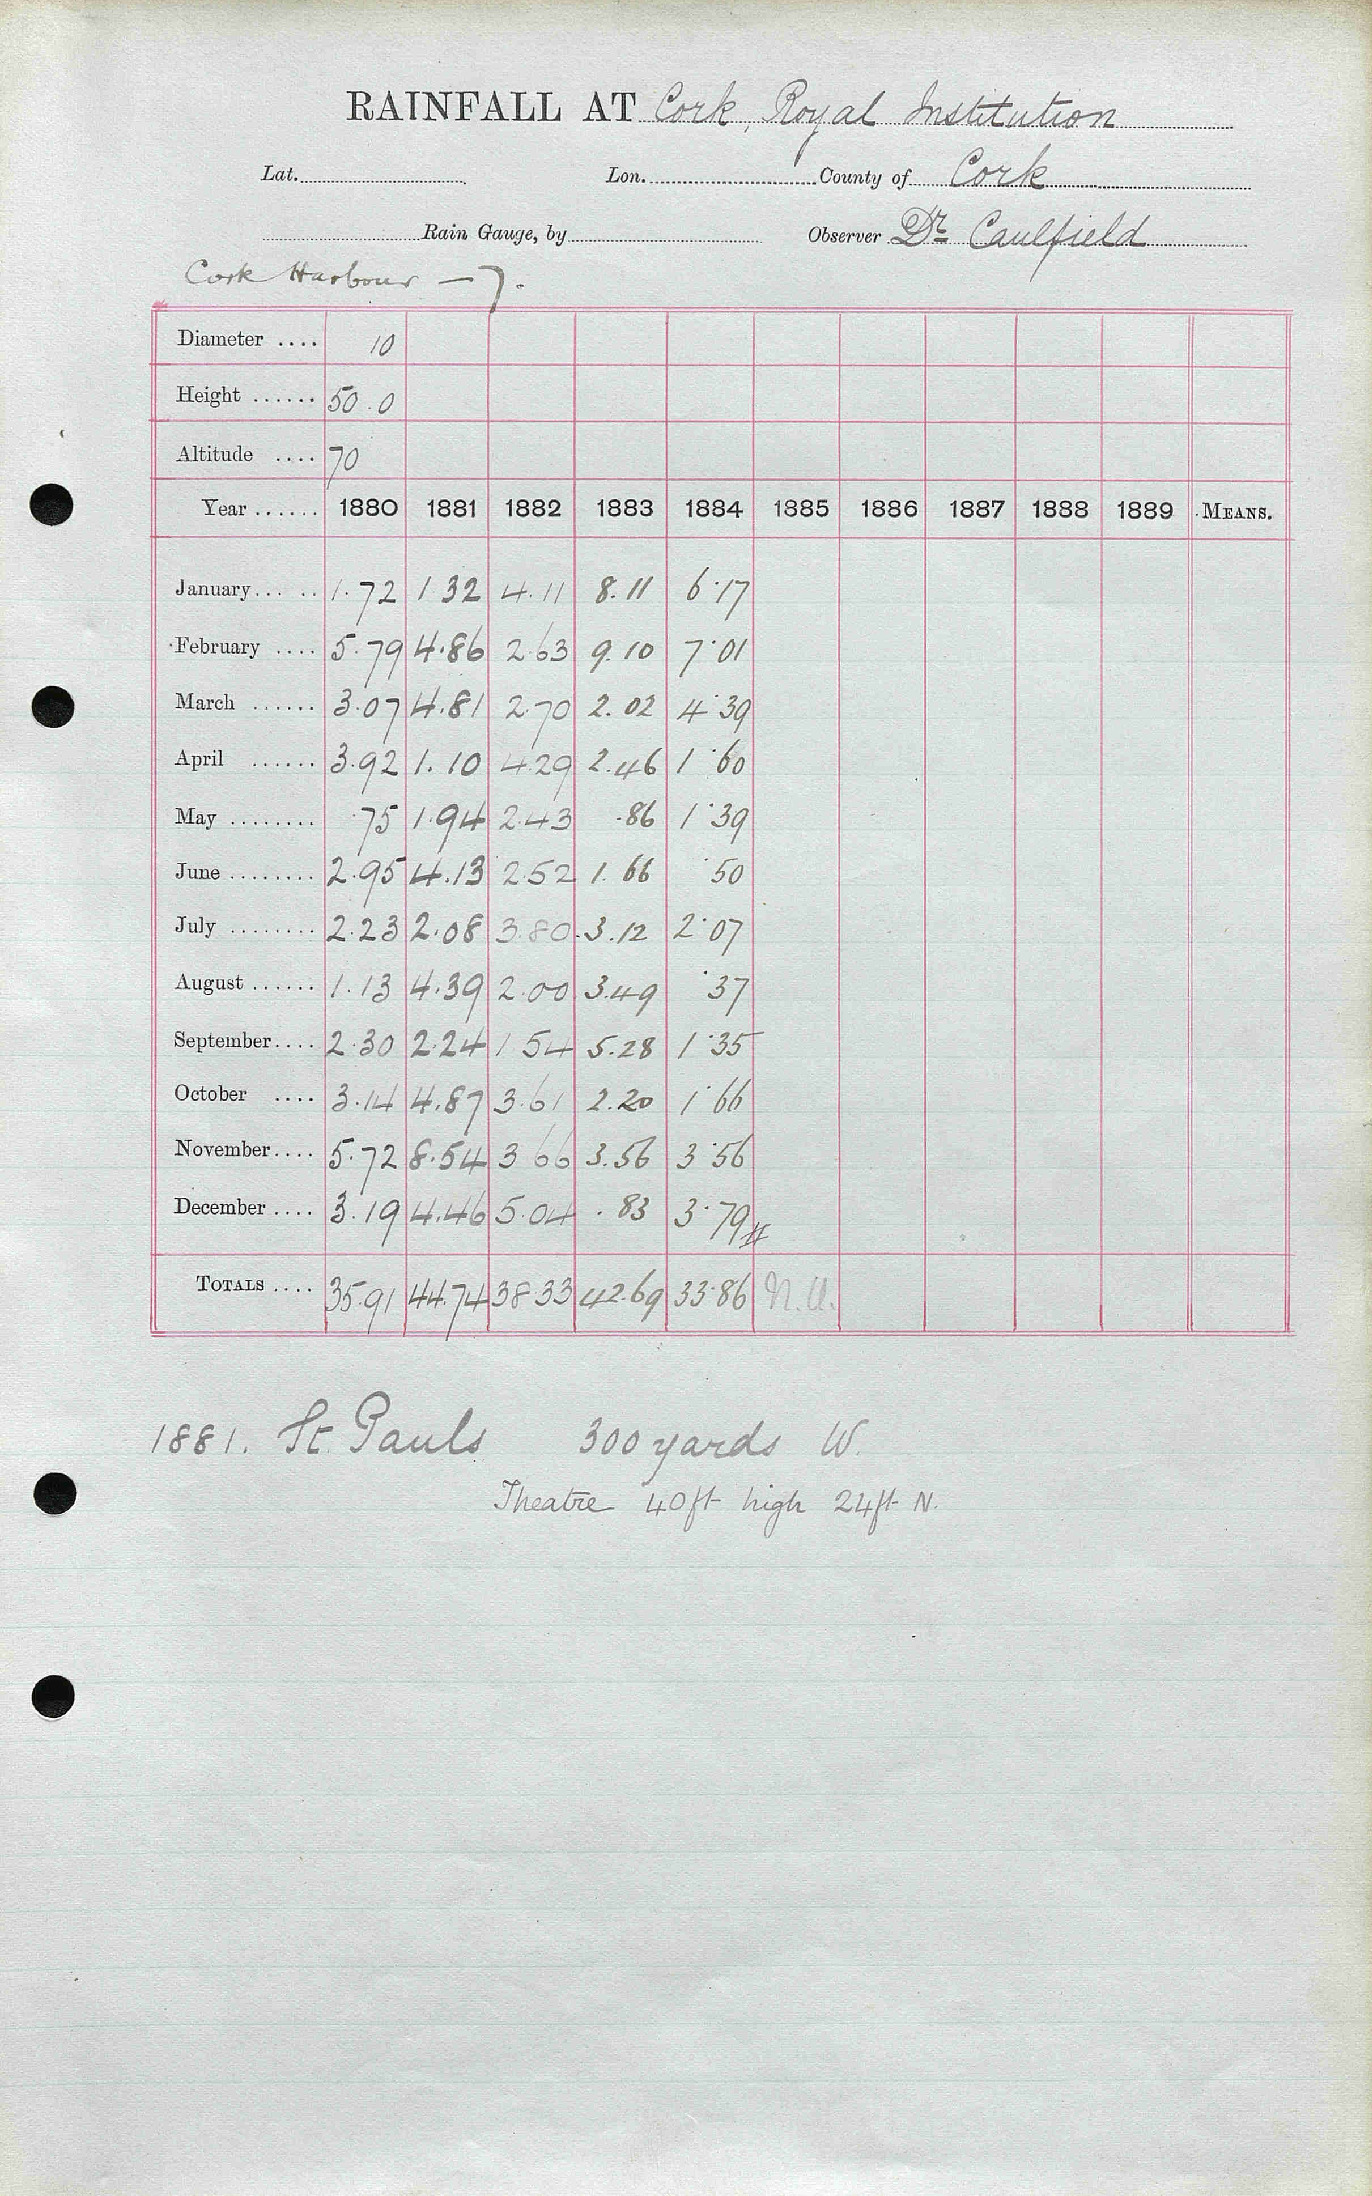 RAINFALL AT Cork, Royal Institution
Lat. Lon. County of Cork
Rain Gauge, by Observer Dr Caulfield
Cork Harbour — 7.
Diameter .... 10
Height ...... 50.0
Altitude .... 70
Year ...... 1880 1881 1882 1883 1884 1885 1886 1887 1888 1889 MEANS.
January... .. 1.72 1 32 4.11 8.11 6.17
February .... 5.79 4.86 2.63 9.10 7.01
March ...... 3.07 4.81 2.70 2.02 4.39
April ...... 3.92 1.10 4.29 2.46 1.60
May ........ .75 1.94 2.43 .86 1.39
June ........ 2.95 4.13 2.52 1.66 .50
July ........ 2.23 2.08 3.80 3.12 2.07
August ...... 1.13 4.39 2.00 3.49 .37
September.... 2.30 2.24 1 54 5.28 1.35
October .... 3.14 4.87 3.61 2.20 1.66
November.... 5.72 8.54 3 66 3.56 3.56
December .... 3.19 4.46 5.04 .83 3.79
TOTALS .... 35.91 44.74 38.33 42.69 33.86 N.U.
1881. St. Pauls 300 yards W.
Theatre 40ft high 24ft N.